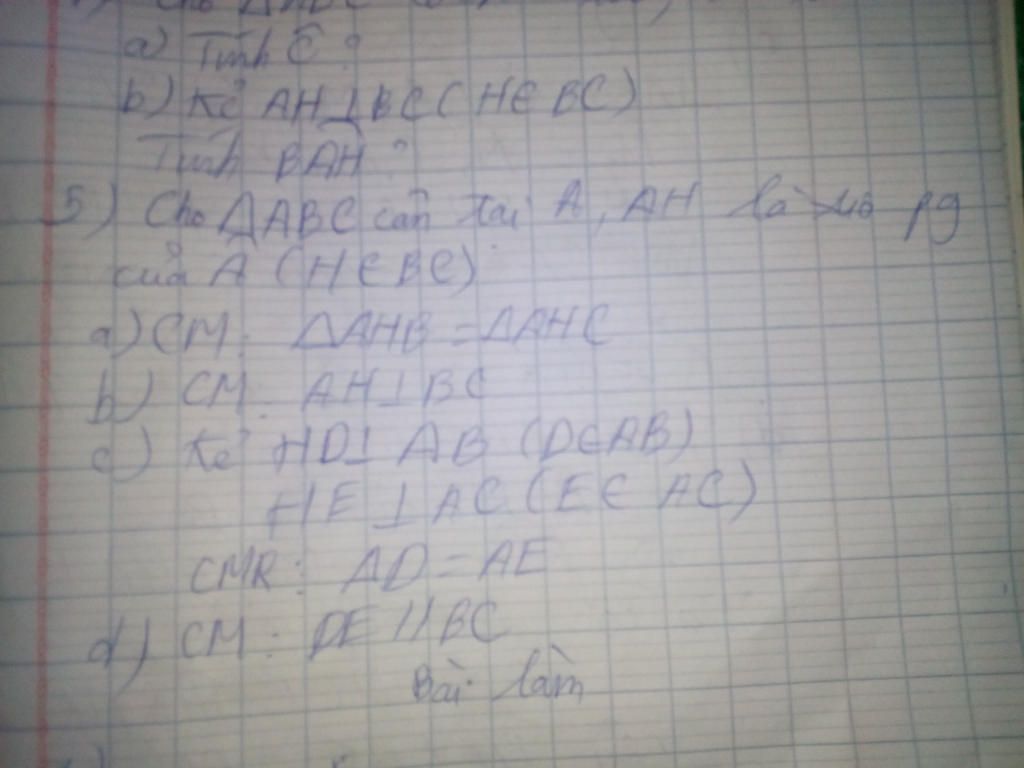 Cho ΔABC
a) Tính Ĉ ?
b) Kẻ AH ⊥ BC ( H ∈ BC )
Tính BAH ?
5) Cho ΔABC cân tại A, AH là pg
của Â ( H ∈ BC )
a) CM: ΔAHB = ΔAHC
b) CM: AH ⊥ BC
c) Kẻ HD ⊥ AB (D ∈ AB)
HE ⊥ AC ( E ∈ AC )
CMR: AD = AE
d) CM: DE // BC
Bài làm